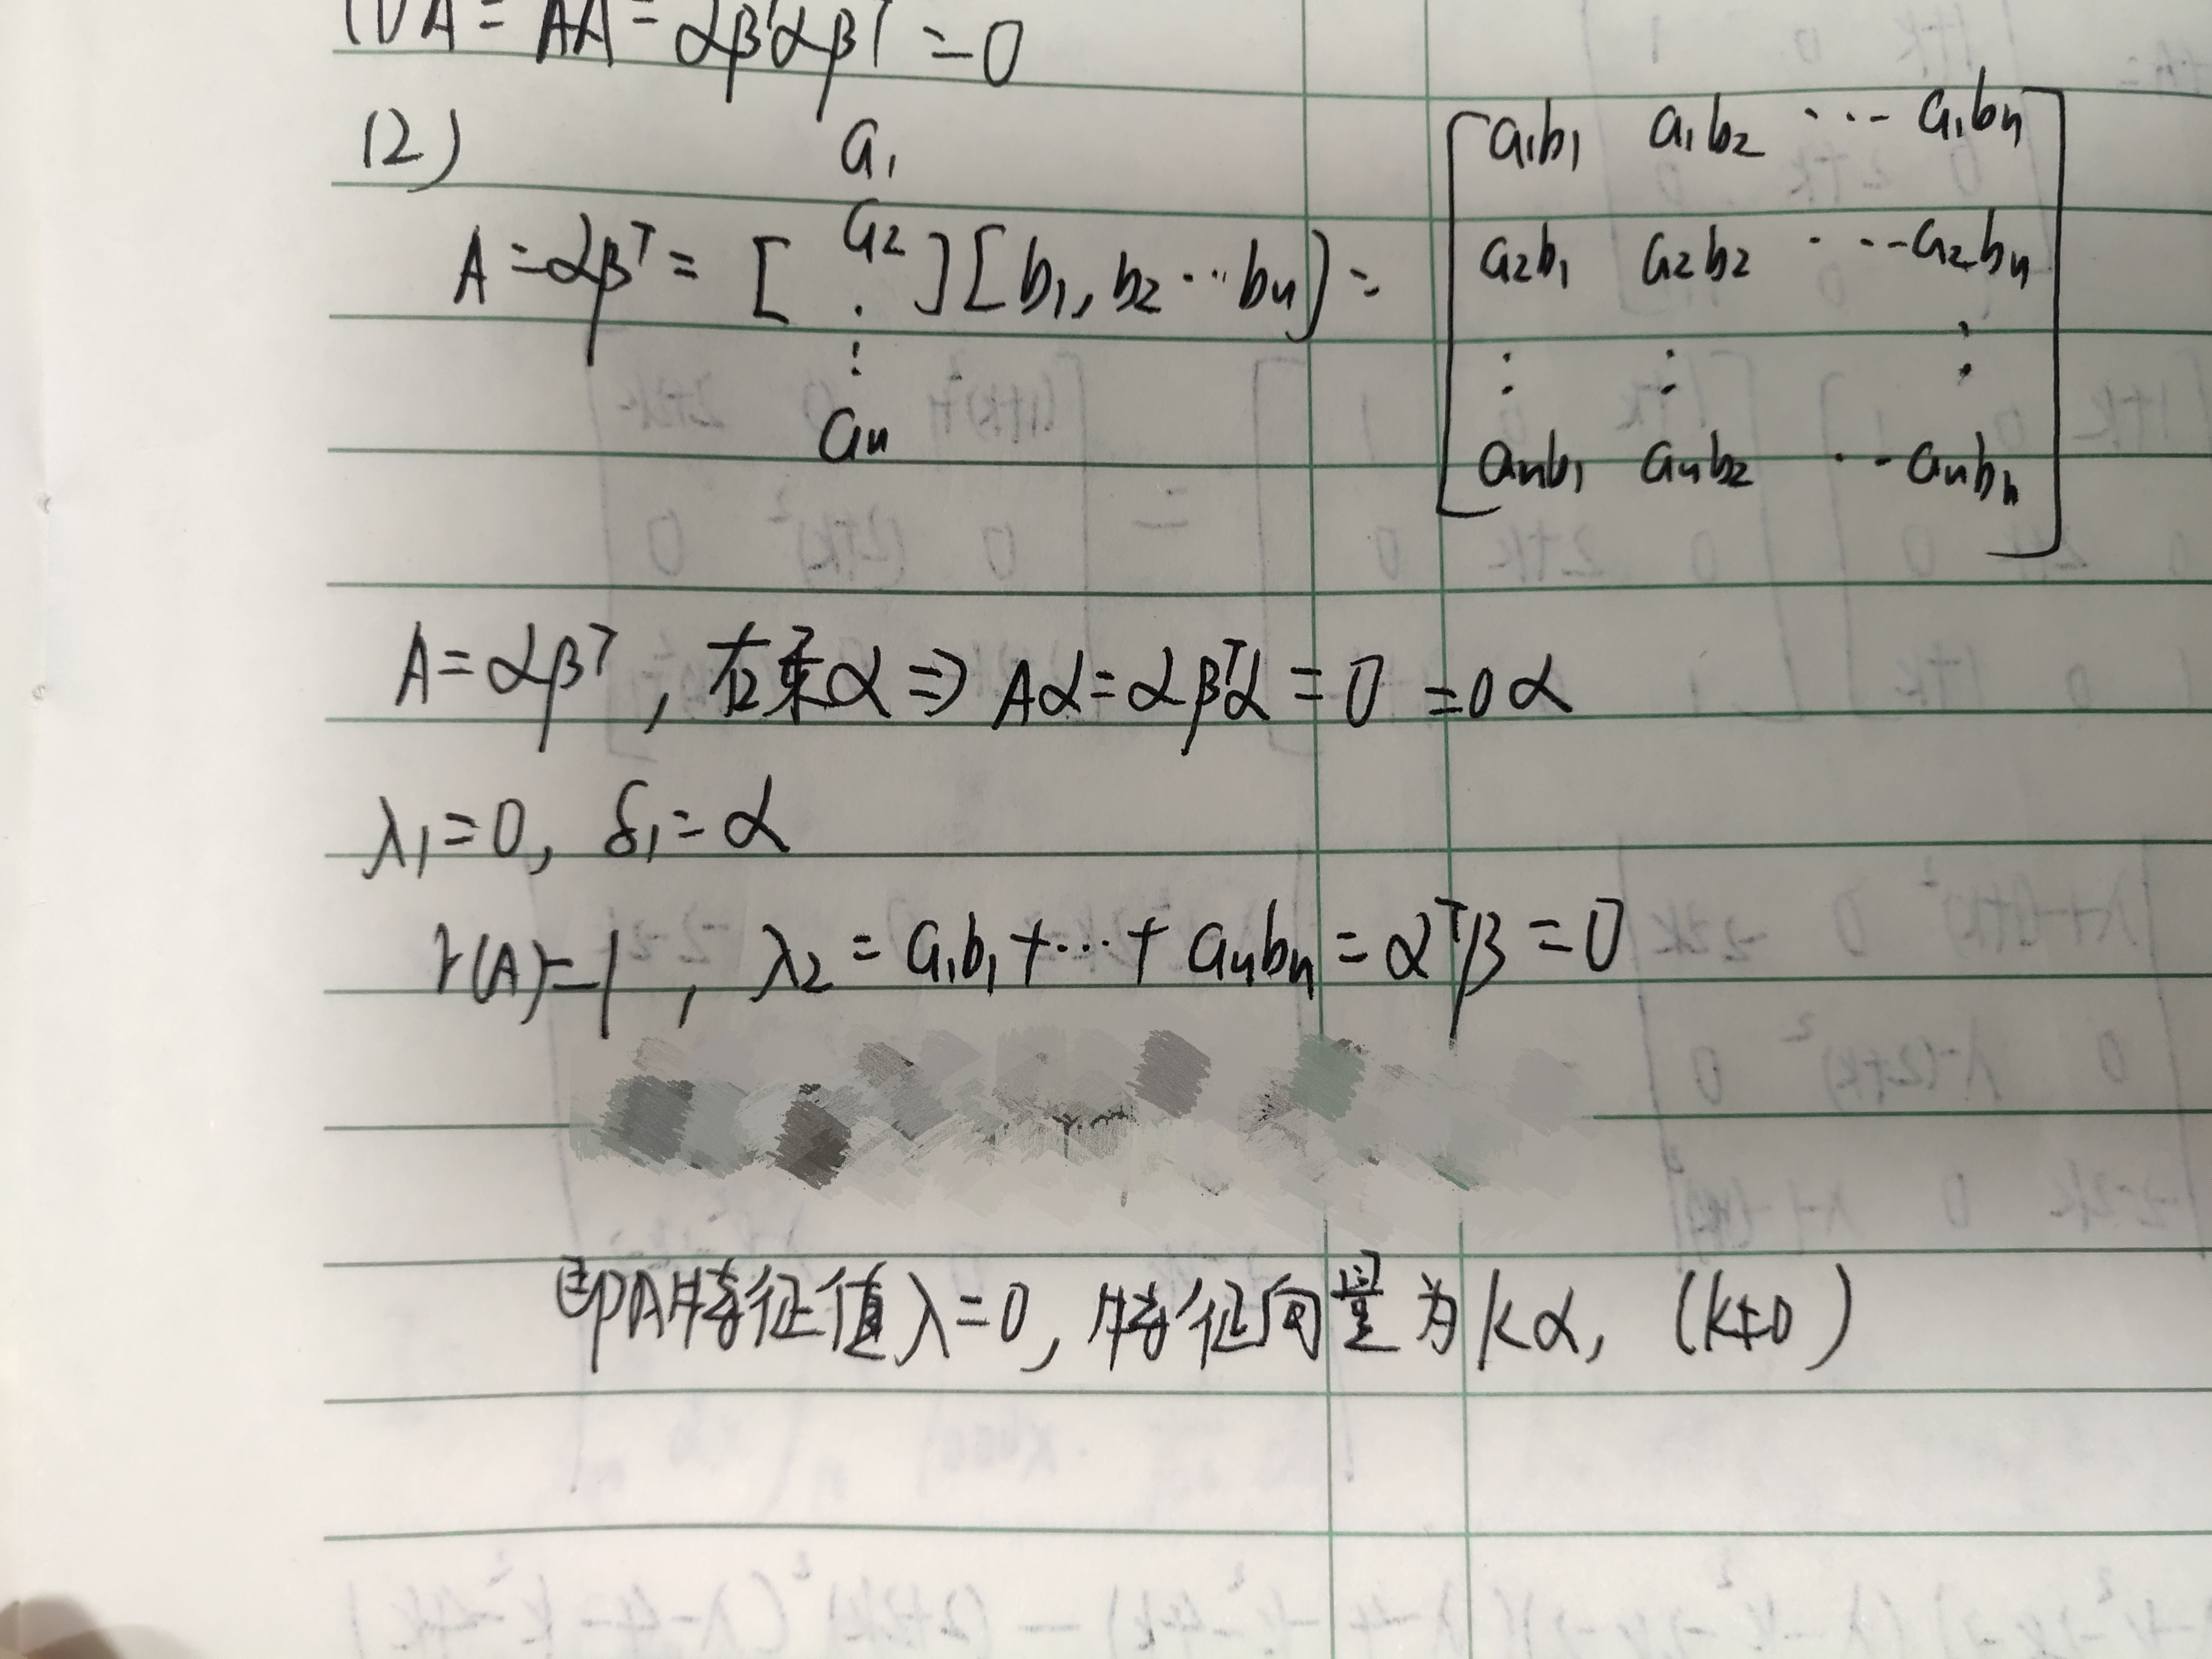 (1) A² = AA = αβᵀαβᵀ = 0
(2)
A = αβᵀ = [a₁ a₂ ⋮ aₙ][b₁, b₂ ⋯ bₙ] = [a₁b₁ a₁b₂ ⋯ a₁bₙ
a₂b₁ a₂b₂ ⋯ a₂bₙ
⋮ ⋮ ⋮
aₙb₁ aₙb₂ ⋯ aₙbₙ]
A = αβᵀ, 右乘α ⇒ Aα = αβᵀα = 0 = 0α
λ₁ = 0, δ₁ = α
r(A) = 1, λ₂ = a₁b₁ + ⋯ + aₙbₙ = αᵀβ = 0
即A特征值λ=0, 特征向量为kα, (k≠0)